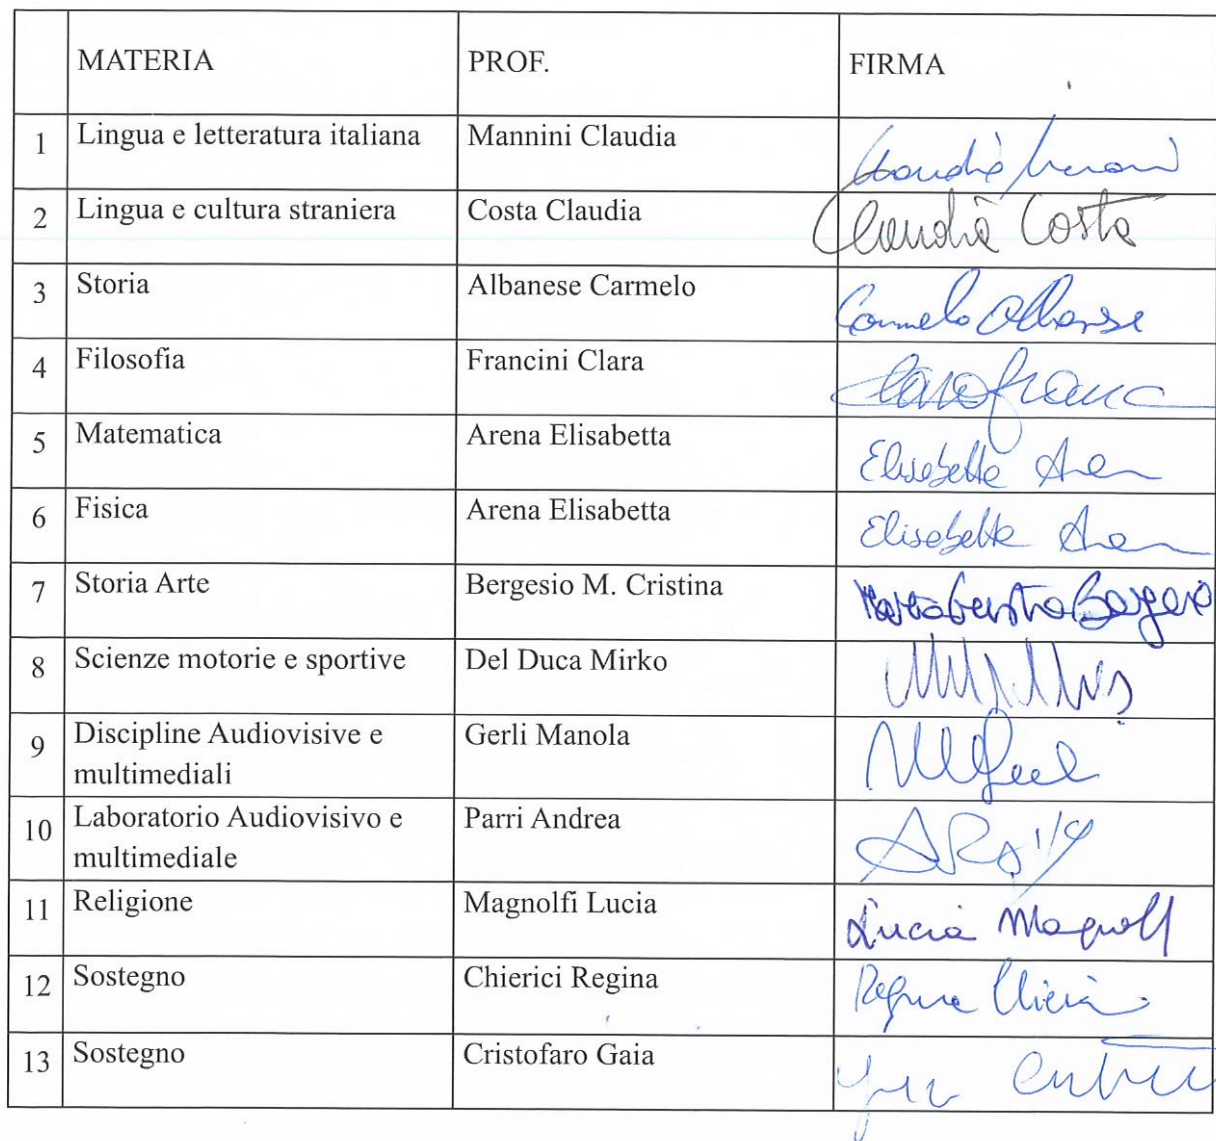 MATERIA PROF. FIRMA
1 Lingua e letteratura italiana Mannini Claudia Claudia
2 Lingua e cultura straniera Costa Claudia Claudia Costa
3 Storia Albanese Carmelo Carmelo Albanese
4 Filosofia Francini Clara
5 Matematica Arena Elisabetta Elisabetta
6 Fisica Arena Elisabetta Elisabetta
7 Storia Arte Bergesio M. Cristina
8 Scienze motorie e sportive Del Duca Mirko
9 Discipline Audiovisive e
multimediali Gerli Manola
10 Laboratorio Audiovisivo e
multimediale Parri Andrea
11 Religione Magnolfi Lucia Lucia
12 Sostegno Chierici Regina
13 Sostegno Cristofaro Gaia